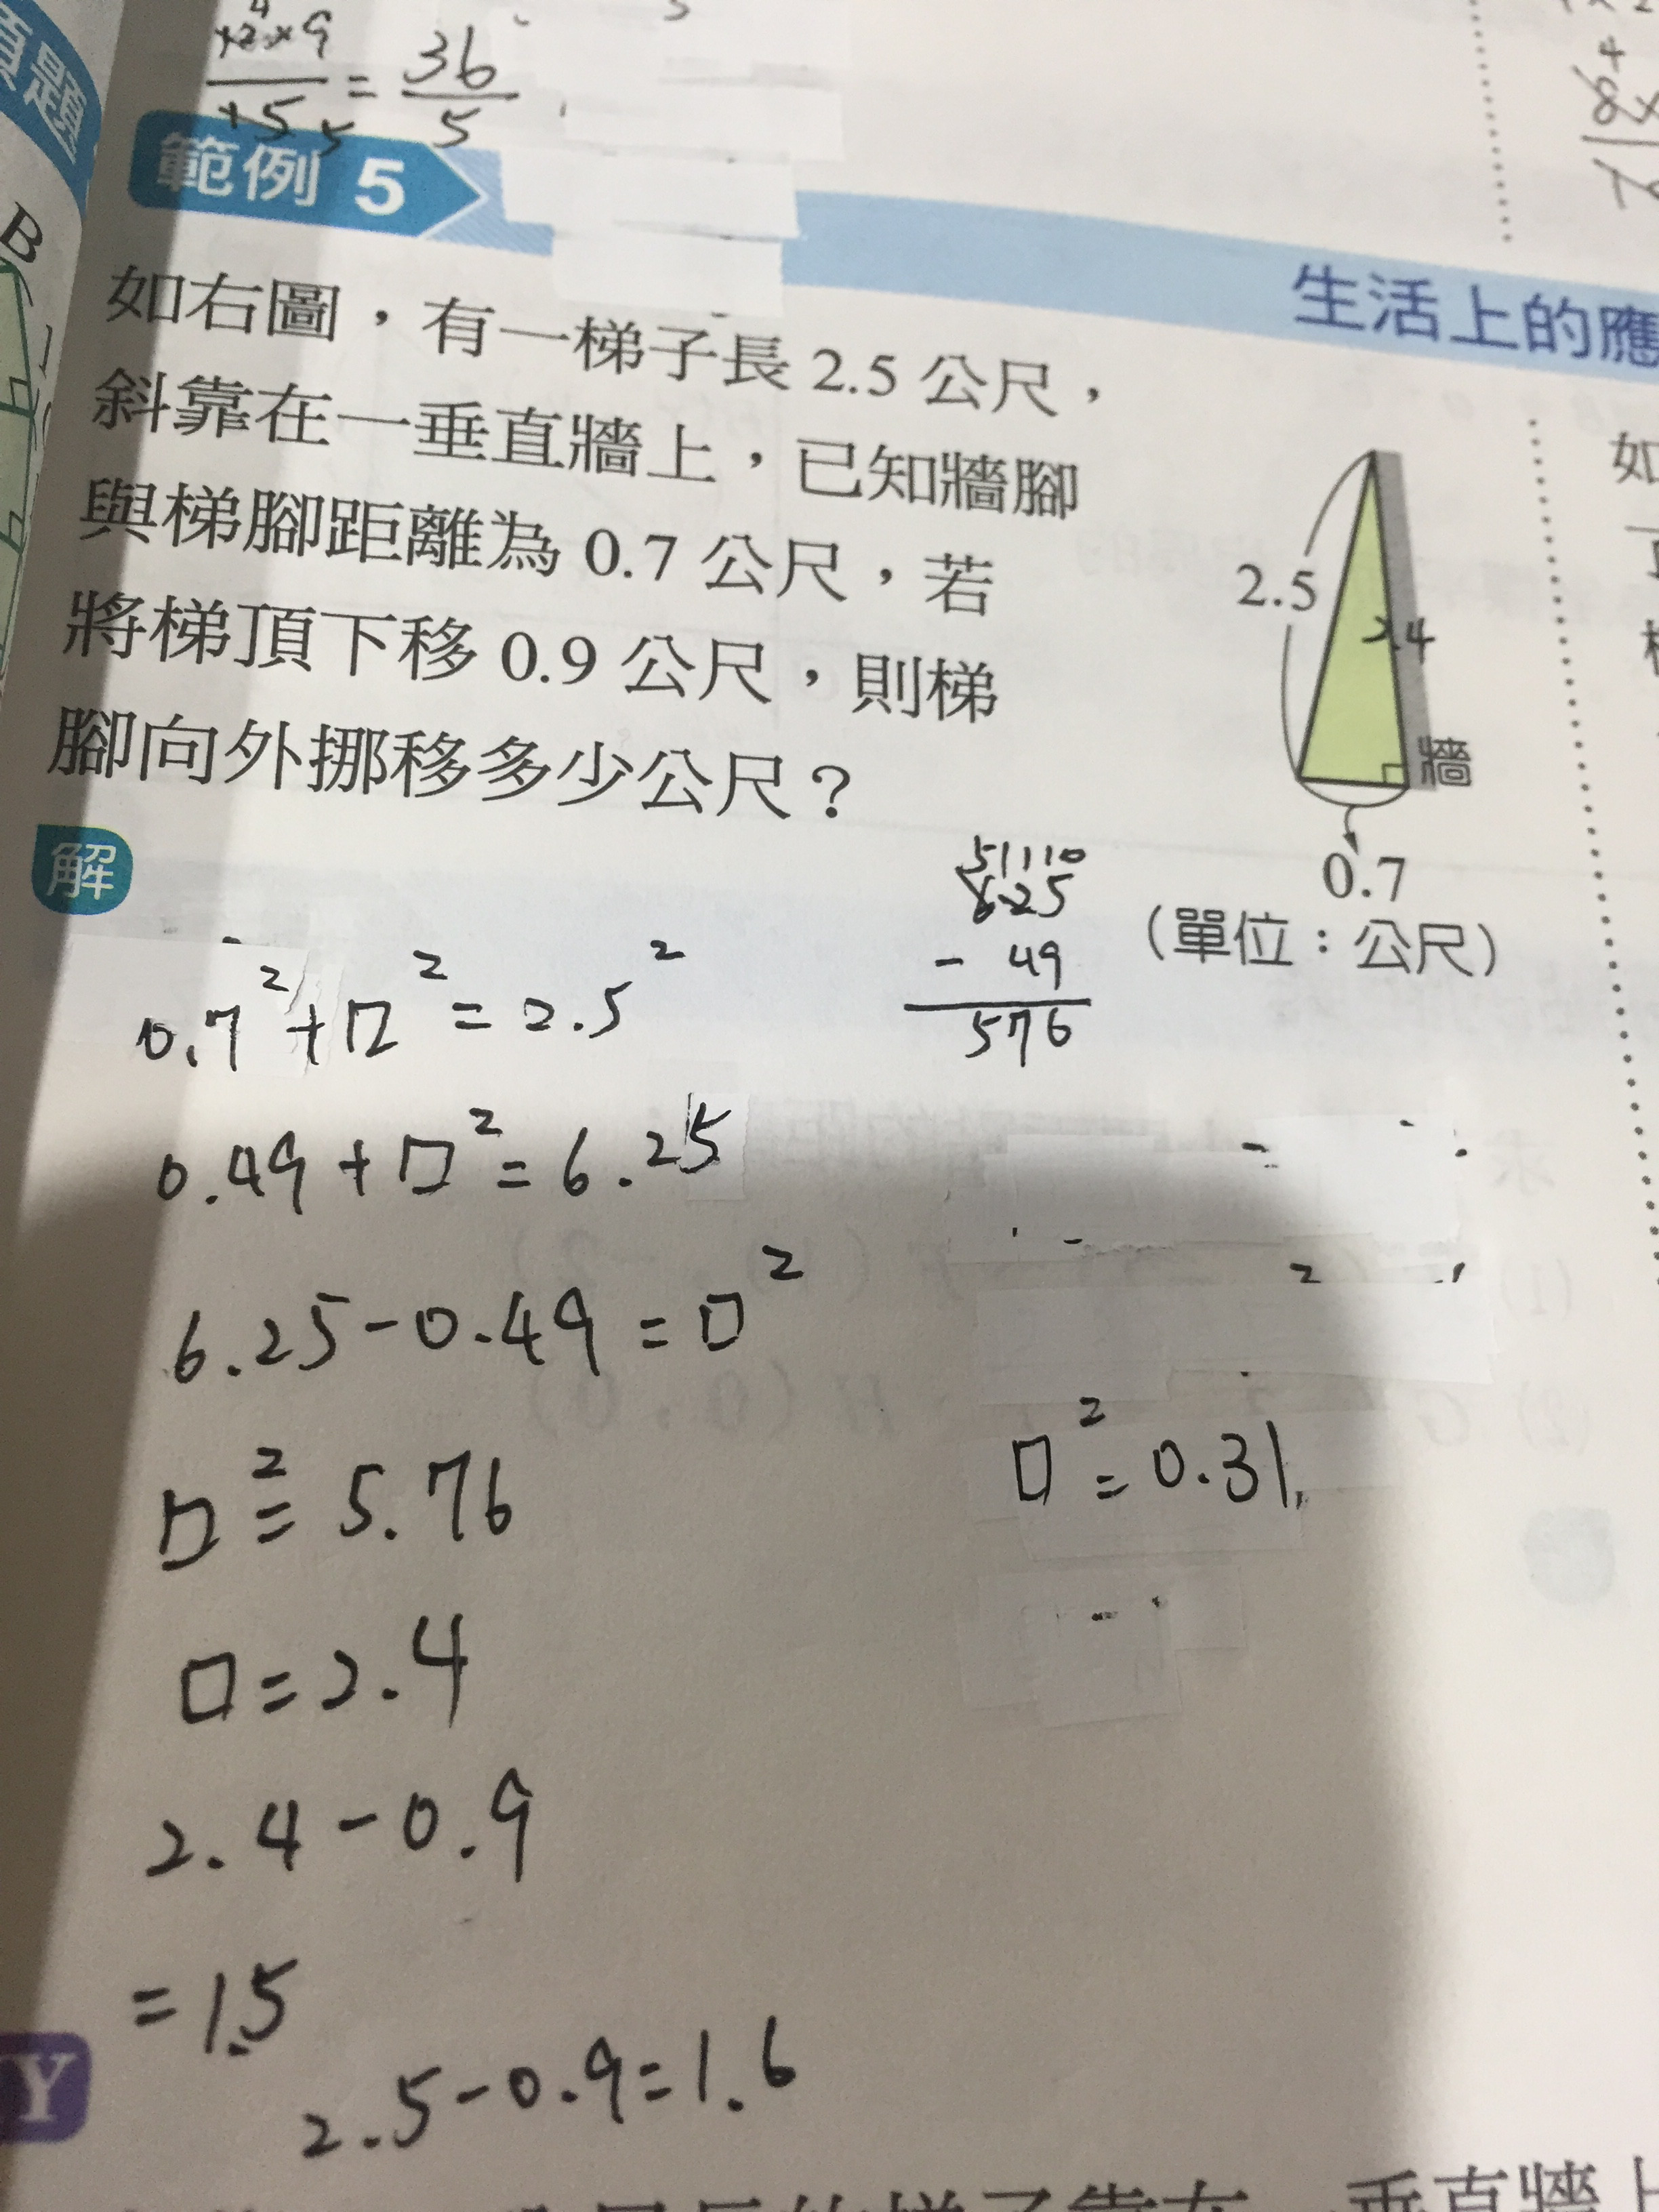 題
B
×2^4×9 / +5 5 = 36/5
範例 5
生活上的應
如右圖，有一梯子長 2.5 公尺，
斜靠在一垂直牆上，已知牆腳
與梯腳距離為 0.7 公尺，若
將梯頂下移 0.9 公尺，則梯
腳向外挪移多少公尺？
2.5
2.4
牆
0.7
（單位：公尺）
如
解
0.7²+□²=2.5²
0.49+□²=6.25
6.25-0.49=□²
□²=5.76
□=2.4
2.4-0.9
=1.5
2.5-0.9=1.6
5 11 10
625
- 49
576
□²=0.31
Y
垂直牆上